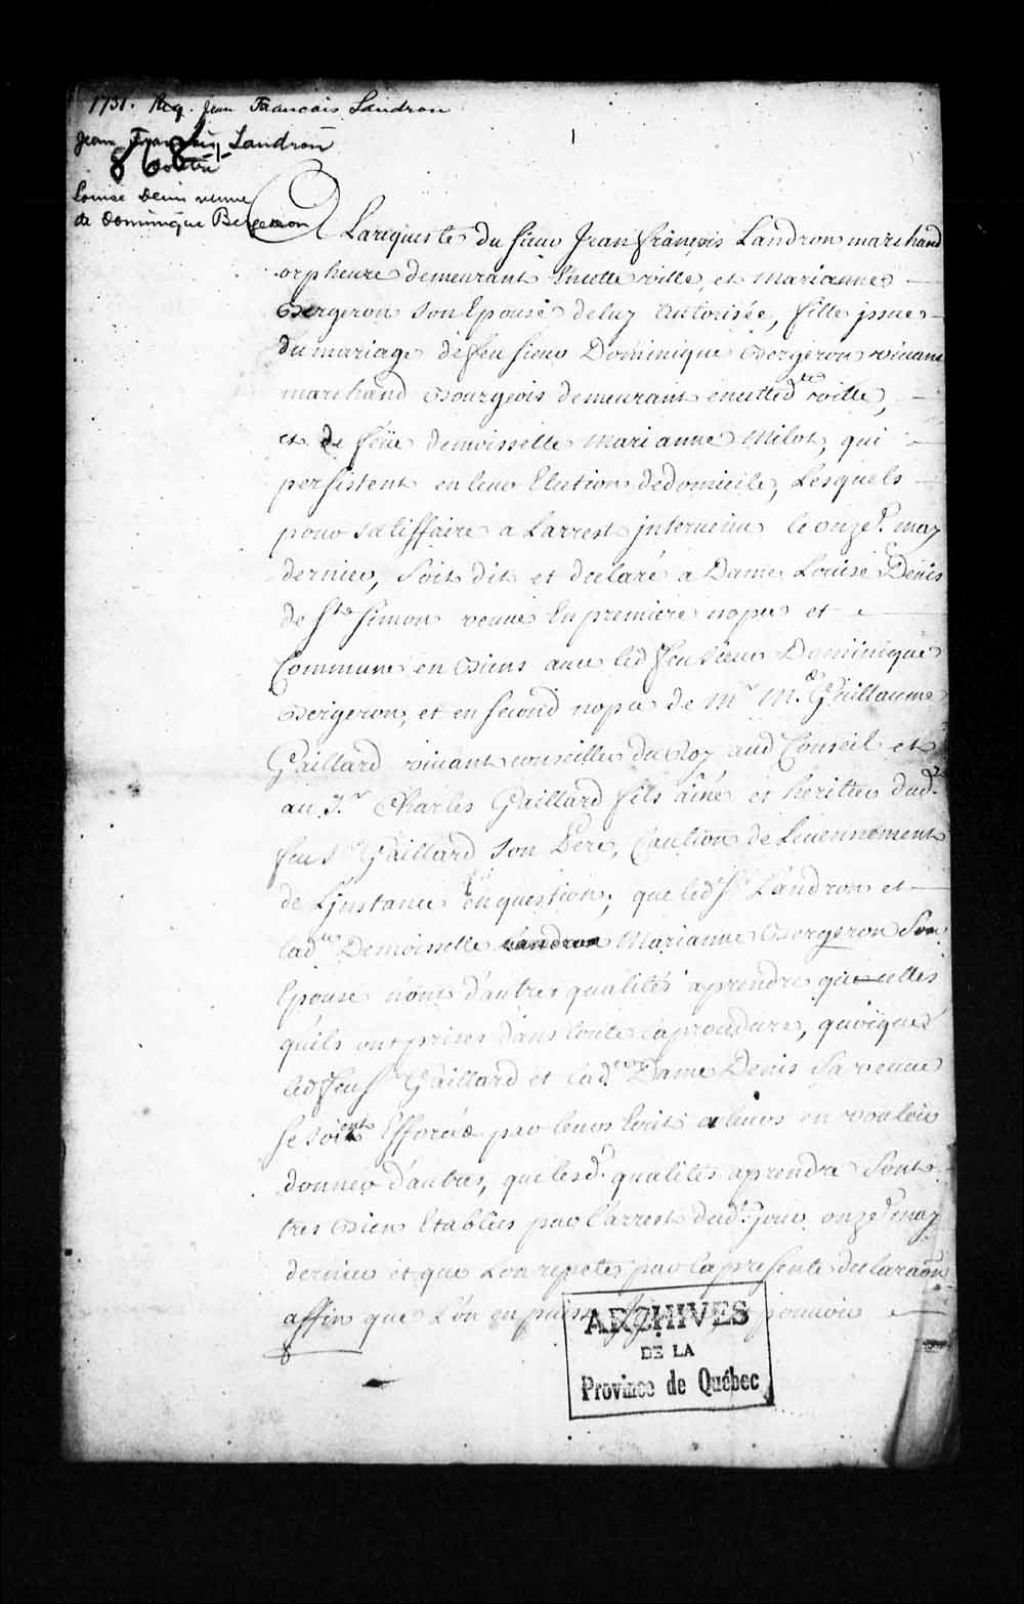 1731. Req. Jean Francois Landron
Jean François Landron
868
contre
Louise Denis veuve
de Dominique Bergeron
1
A Larequeste du sieur Jean françois Landron marchand
orpheure demeurant Encette ville, et Marianne
Bergeron son Epouse deluy Autorisée, fille jssue
du mariage de feu sieur Dominique Bergeron vivant
marchand Bourgeois demeurant encetted.te ville,
et de feüe demoisselle Marianne Milot, qui
persistent en leur Election dedomicile, Lesquels
pour satisffaire a Larrest jntervenu le onze.e may
dernier, soit dit et declaré a Dame Louise Denis
de S.te Simon veuve En premiere nopce et
Commune en Biens avec led feu sieur Dominique
Bergeron, et en second nopce de M.r M.e Guillaume
Gaillard vivant conseiller du Roy aud Conseil et
au S.r Charles Gaillard fils aîné et heritier dud.
feu S.r Gaillard son Pere, Caution de Levennement
de Ljnstance en question; que led S.r Landron et
lad.te Demoisselle Landron Marianne Bergeron son
Epouse n'ont d'autres qualités aprendre que celles
qu'ils ont prises dans toute laprocedure, quoique
led feu S.r Gaillard et lad. Dame Denis sa veuve
se soient Efforcés par leurs Ecrits en vouloir
donner d'autres, que lesd. qualités aprendre sont
tres Bien Etablies par l'arrest dud. jour onze.e may
dernier et que Lon repete par la presente declaraõn
affin que L'on en puisse
ARCHIVES
DE LA
Province de Québec